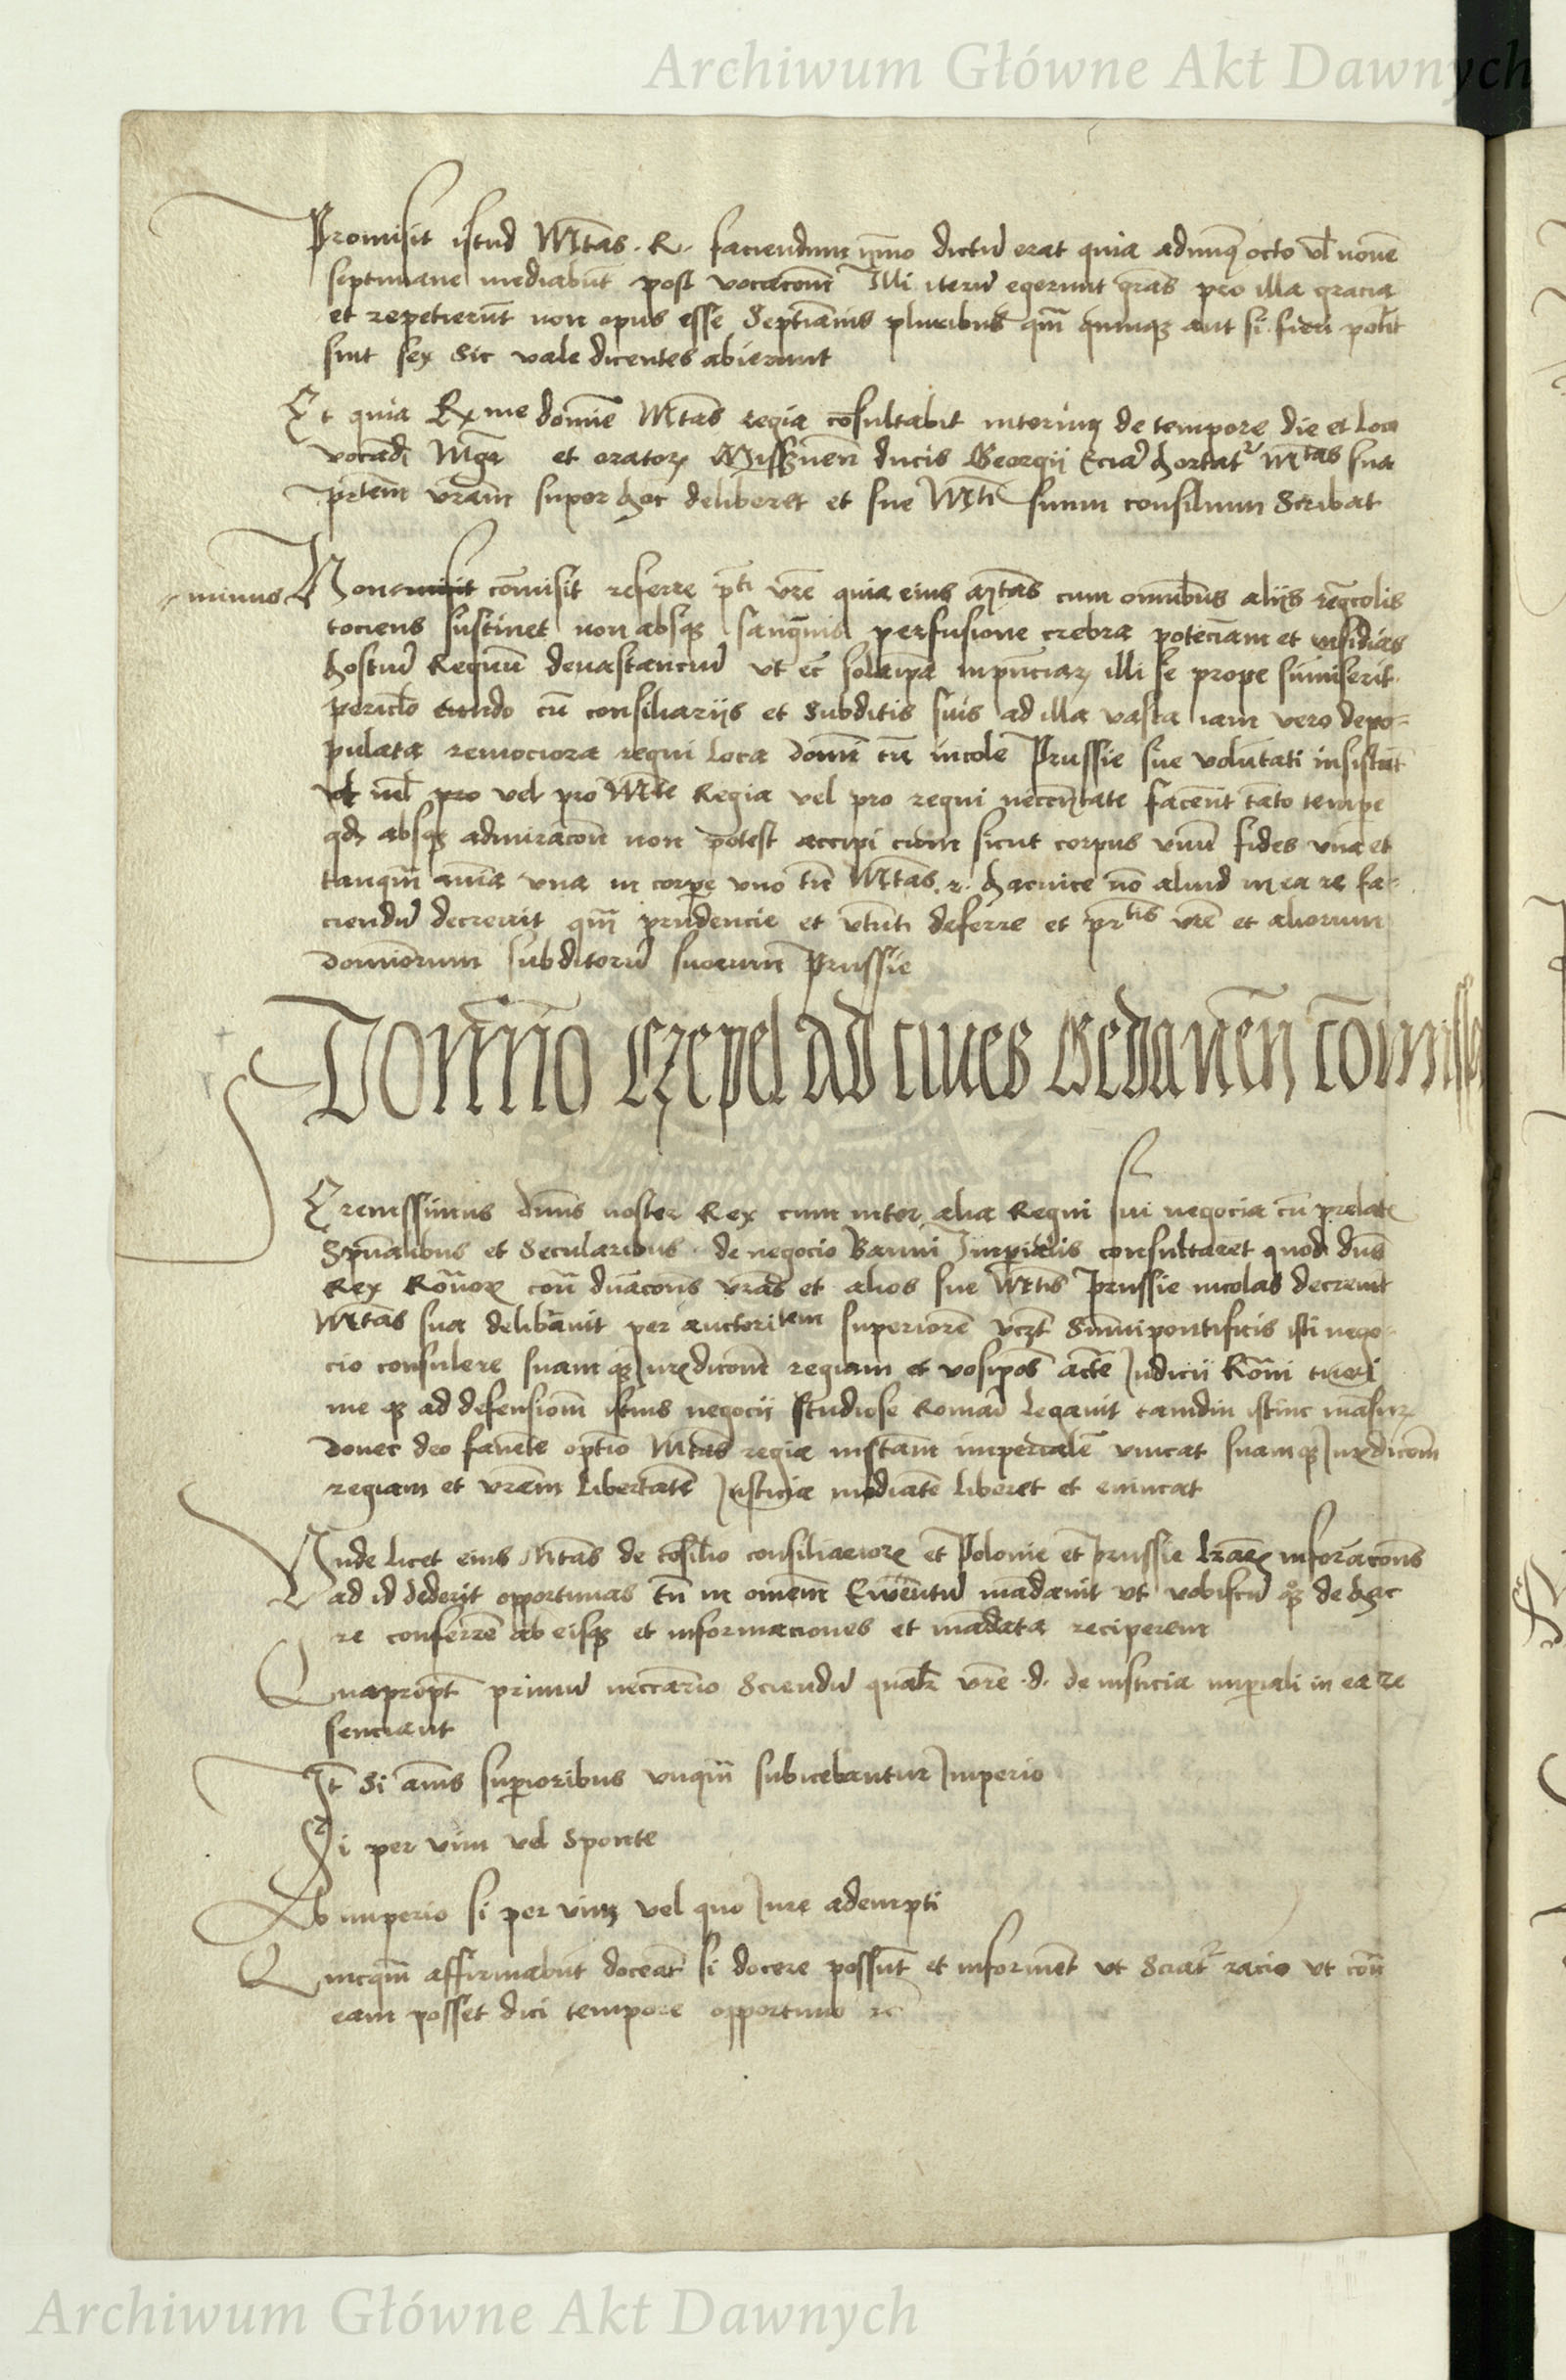 Archiwum Główne Akt Dawnych
Promisit istud Mtas .R. faciendum ymo dictu erat quia adminq octo vl noue
septimane mediabut post vocacom Illi iteru egerunt gras pro illa gracia
et repetierut non opus esse Septianis pluribus qm quinqz aut si fieri polit
sint sex Sic vale dicentes abierunt
Et quia Rxme domie Mtas regia cosultabit interim de tempore die et loco
vocadi Mgr et orator Misznen ducis Georgii Ecia hortat Mtas sua
prtem vram super hoc deliberet et sue Mti suum consilium Scribat
minus Non comisit referre pti vre quia eius Mtas cum omnibus aliis regcolis
tociens sustinet non absqz sanguinis perfusione crebra poteciam et insidias
hostiu Regnu devastanciu vt illi se prope sumiserit
periclo eundo cu consiliariis et Subditis suis ad illa vasta iam vero depo=
pulata remociora regni loca domi cu incole Prussie sue volutati insistut
vel pro Mte Regia vel pro regni neccitate facent tato tempe
qd absqz admiracoe non potest accipi cum sicut corpus vnu fides vna et
tanqm aia vna in corpe vno tn Mtas .r. hacvice no aliud in ea re fa=
ciendu decrevit qm prudencie et vtuti deferre et prtis vre et aliorum
dominorum subditoru suorum Prussie
Domino Czepel ad cives Gedanen comissa
Serenissimus dnus noster Rex cum inter alia Regni sui negocia cu prelatis
Spualibus et Secularibus de negocio Banni Imperialis consultaret quod dns
Rex Romor cont dnacoes vras et alios sue Mtis Prussie incolas decrevit
Mtas sua delibavit per auctoritem superiore vczt Summipontificis isti nego
cio consulere suamqz Juredicoem regiam et vosipos ante Judicii Romi tueri
me qz ad defensiom istius negocii studiose Roma legavit tamdiu istinc masur
donec deo favete optio Mtas regia instam imperiale vincat suamqz Juredicom
regiam et vram libertate Justicia mediate liberet et evincat
Vnde licet eius Mtas de cosilio consiliarior et Polonie et Prussie lras informacoes
ad id dederit opportunas tn in omem Eventu madavit vt vobiscu qz de hac
re conferre ab eisqz et informaciones et madata reciperem
Quapropt primu neccario Sciendu qualr vre .d. de iusticia imperiali in ea re
senciant
It Si annis superioribus vnqm subicebantur Imperio
Si per vim vel Sponte
Ab imperio si per vim vel quo Jure adempti
Quicqm affirmabut doceat si docere possut et informet vt Sciat racio vt cont
eam posset dici tempore opportuno rc
Archiwum Główne Akt Dawnych